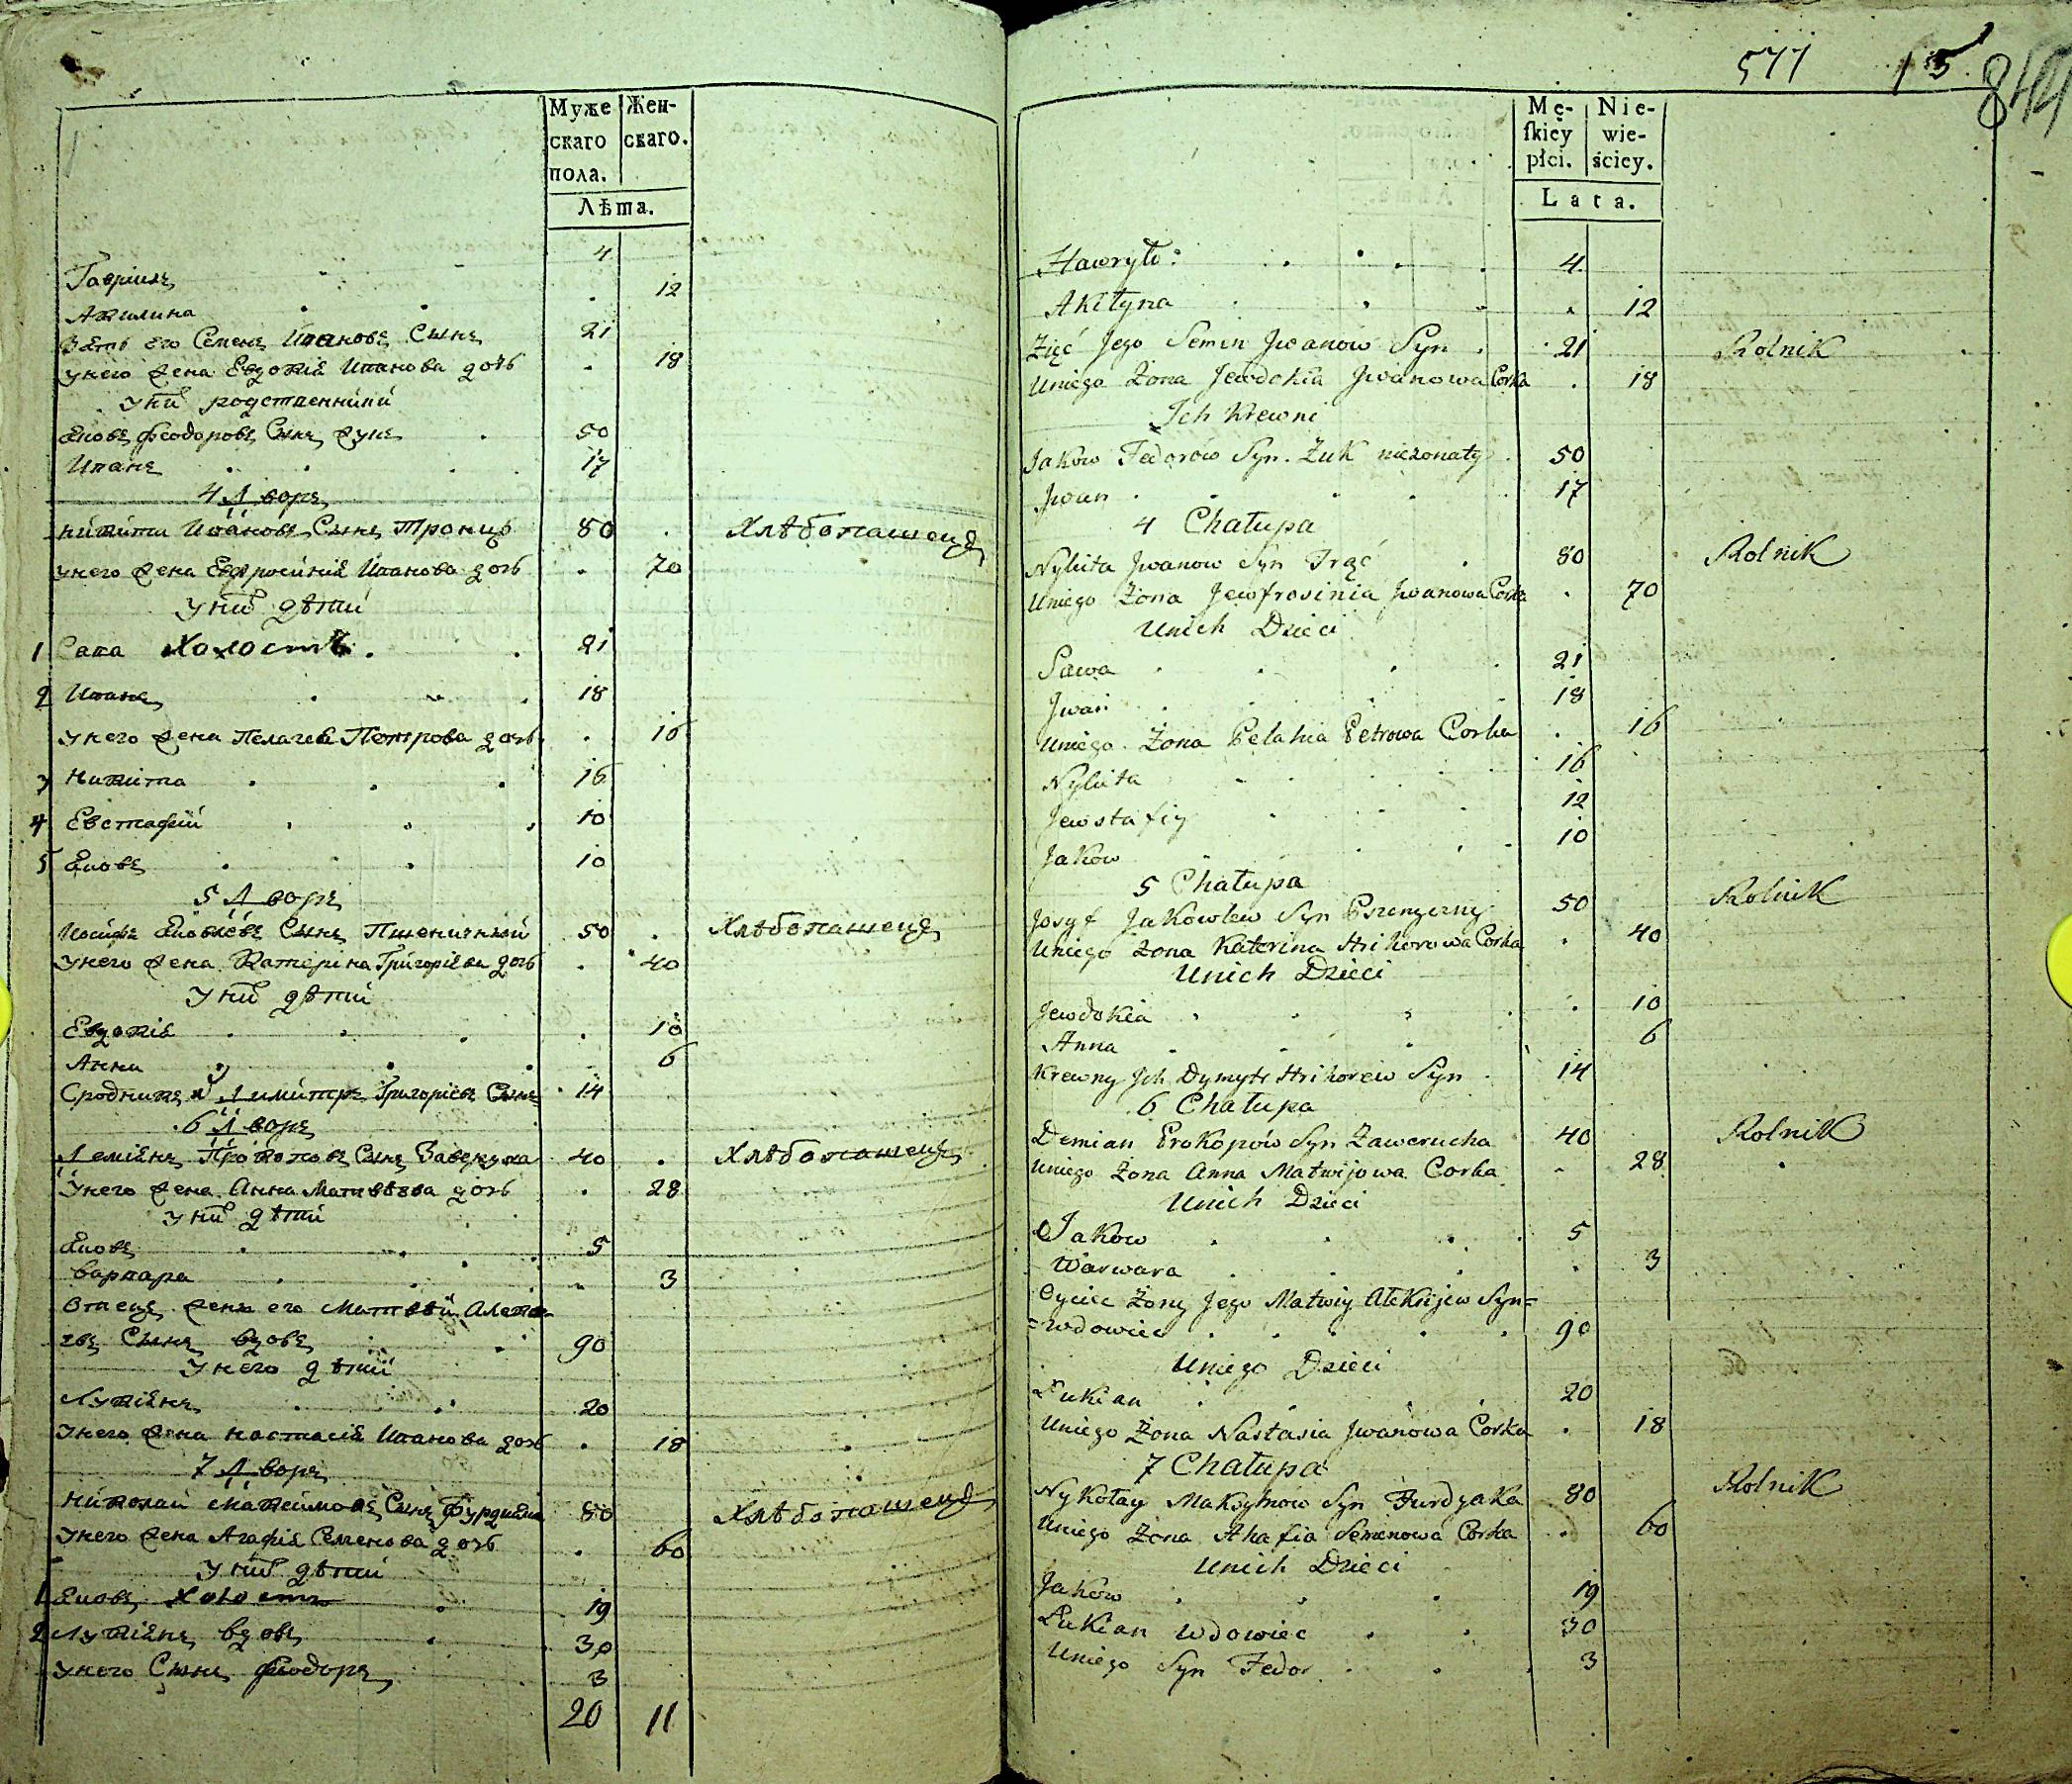 Муже Жен-
скаго скаго.
пола.
Лѣта.
Гавріилъ 4
Акилина 12
Зять его Семенъ Ивановъ Сынъ 21
Унего жена Евдокія Иванова дочь 18
Уних родственники
Яковъ Феодоровъ Сынъ Жукъ 50
Иванъ 17
4 Дворъ
Никита Ивановъ Сынъ Тронць 80 Хлѣбопашецъ
Унего жена Евфросинія Иванова дочь 70
Уних дѣти
1 Сава Холостъ 21
2 Иванъ 18
Унего жена Пелагея Петрова дочь 16
3 Никита 16
4 Евстафій 10
5 Яковъ 10
5 Дворъ
Иосифъ Яковлевъ Сынъ Пшеничный 50 Хлѣбопашецъ
Унего жена Катерина Григоріева дочь 40
Уних дѣти
Евдокія 10
Анна 6
Сродникъ их Димитръ Григоріевъ Сынъ 14
6 Дворъ
Деміянъ Прокоповъ Сынъ Заверуха 40 Хлѣбопашецъ
Унего жена Анна Матвѣева дочь 28
Уних дѣти
Яковъ 5
Варвара 3
Отецъ жены его Матвѣй Алексѣ-
евъ Сынъ вдовъ 90
Унего дѣти
Лукіянъ 20
Унего жена Настасія Иванова дочь 18
7 Дворъ
Николай Максимовъ Сынъ Фурдыяка 80 Хлѣбопашецъ
Унего жена Агафія Семенова дочь 60
Уних дѣти
1 Яковъ Холостъ 19
2 Лукіянъ вдовъ 30
Унего Сынъ Феодоръ 3
20 11
577 15 844
Mę- Nie-
skiey wie-
płci. ściey.
Lata.
Hawryło 4
Akilyna 12
Zięć Jego Semen Jwanow Syn 21 Rolnik
Uniego Żona Jewdokia Jwanowa Corka 18
Ich Krewni
Jakow Fedorów Syn Żuk nieżonaty 50
Jwan 17
4 Chałupa
Nykita Jwanow Syn Trąć 80 Rolnik
Uniego Żona Jewfrosinia Jwanowa Corka 70
Unich Dzieci
Sawa 21
Jwan 18
Uniego Żona Pelahia Petrowa Corka 16
Nykita 16
Jewstafiy 12
Jakow 10
5 Chałupa
Josyf Jakowlew Syn Pszenyczny 50 Rolnik
Uniego Żona Katerina Hrihorowa Corka 40
Unich Dzieci
Jewdokia 10
Anna 6
Krewny Jch Dymytr Hrihorew Syn 14
6 Chałupa
Demian Prokopów Syn Zawerucha 40 Rolnik
Uniego Żona Anna Matwijowa Corka 28
Unich Dzieci
Jakow 5
Warwara 3
Oyciec Żony Jego Matwiy Alekiijew Syn=
=wdowiec 90
Uniego Dzieci
Łukian 20
Uniego Żona Nastasia Jwanowa Corka 18
7 Chałupa
Nykołay Maksymow Syn Furdyaka 80 Rolnik
Uniego Żona Ahafia Semenowa Corka 60
Unich Dzieci
Jakow 19
Łukian Wdowiec 30
Uniego Syn Fedor 3